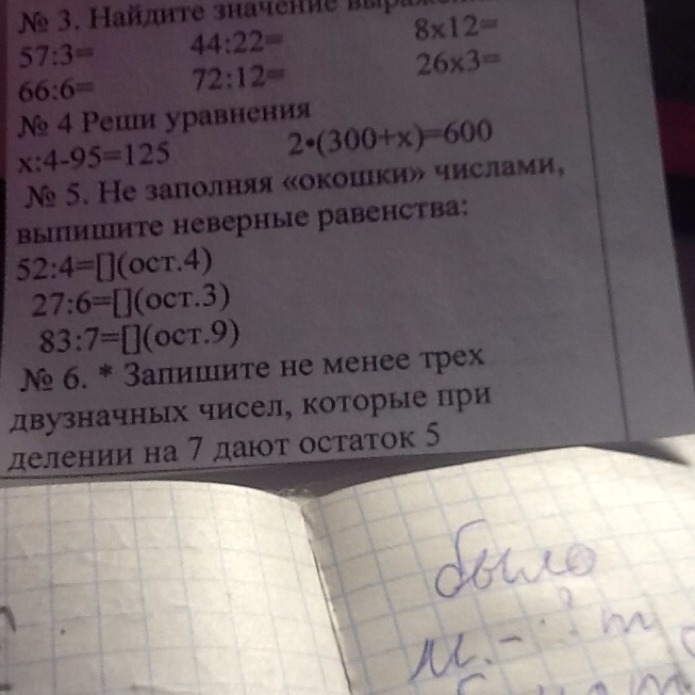 № 3. Найдите значение выраже
57:3= 44:22= 8х12=
66:6= 72:12= 26х3=
№ 4 Реши уравнения
х:4-95=125 2•(300+х)=600
№ 5. Не заполняя «окошки» числами,
выпишите неверные равенства:
52:4=[](ост.4)
27:6=[](ост.3)
83:7=[](ост.9)
№ 6. * Запишите не менее трех
двузначных чисел, которые при
делении на 7 дают остаток 5
было
М.-? т